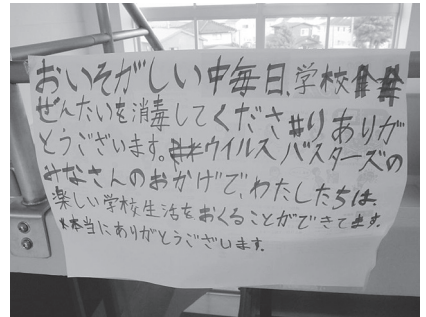 おいそがしい中毎日、学校
ぜんたいを消毒してくださりありが
とうございます。ウイルスバスターズの
みなさんのおかげで、わたしたちは、
楽しい学校生活をおくることができてます。
本当にありがとうございます。